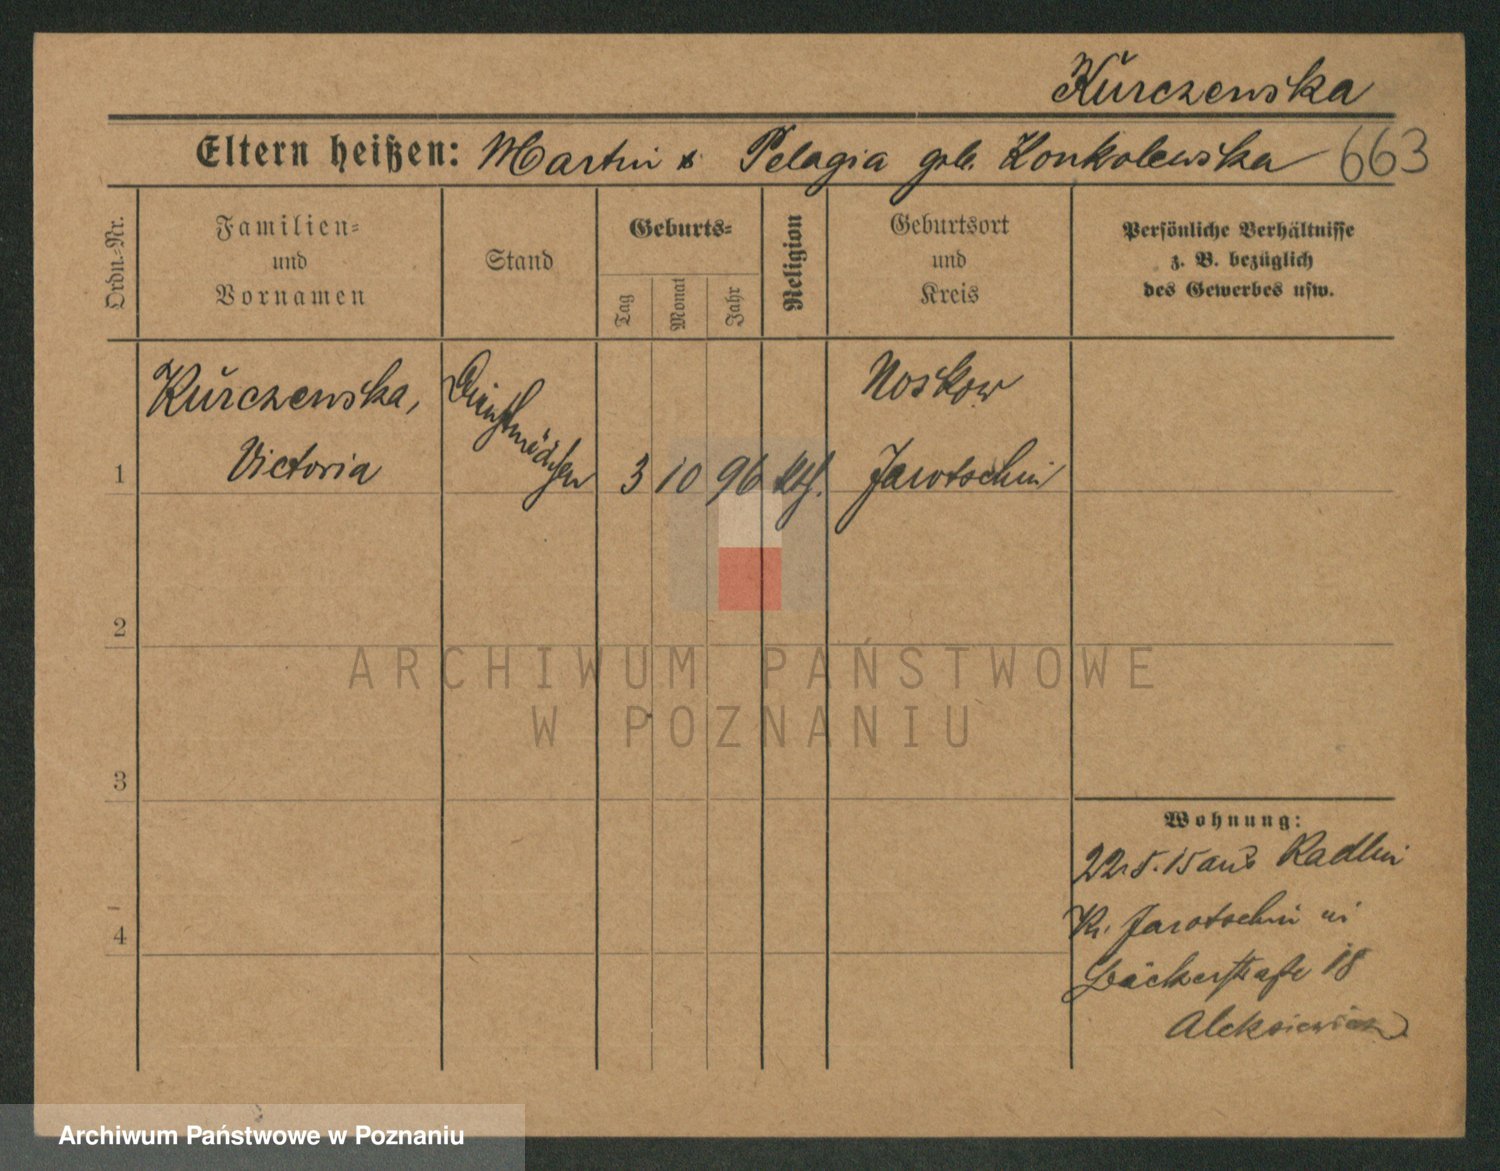 Kurczewska
Eltern heißen: Martin & Pelagia geb. Konkolewska 663
Ordn.-Nr.
Familien-
und
Vornamen
Stand
Geburts-
Tag
Monat
Jahr
Religion
Geburtsort
und
Kreis
Persönliche Verhältnisse
z. B. bezüglich
des Gewerbes usw.
1
Kurczewska,
Victoria
Dienstmädchen
3 10 96 kth.
Noskow
Jarotschin
2
3
4
ARCHIWUM PAŃSTWOWE
W POZNANIU
Wohnung:
22.5.15 aus Radlin
Kr. Jarotschin in
Bäckerstraße 18
Aleksiewicz
Archiwum Państwowe w Poznaniu